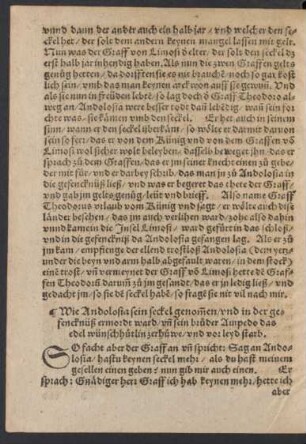 vnnd dann der ander auch ein halb jar / vnd welcher den se-
ckel het / der solt dem andern keynen mangel lassen mit gelt.
Nun was der Graff von Limosi d'elter / der solt den seckel dz
erst halb jar in hendig haben. Als nun die zwen Graffen gelts
genůg hetten / da dorfften sie es nit brauchē / noch so gar köst
lich sein / vmb das man keynen arckwon auff sie gewün. Vnd
als sie nun in freüden lebtē / so lag doch d Graff Theodoro al-
weg an / Andolosia were besser todt dañ lebēdig / wañ sein for
chte was / sie kämen vmb den seckel. Er het auch in seinem
sinn / wann er den seckel überkäm / so wölte er darmit darvon
sein so fert / das er von dem Künig vnd von dem Graffen vō
Limosi wol sicher wolt beleyben / dasselb bewegt ihn / das er
sprach zů dem Graffen / das er jm seiner knecht einen zů gebe /
der mit für / vnd er darbey schüb / das man jn zů Andolosia in
die gefencknüß ließ / vnd was er begeret das thete der Graff /
vnd gab jm gelts genůg / leüt vnd brieff. Also name Graff
Theodorus vrlaub vom Künig vnd sagt / er wölte auch dise
länder besehen / das jm auch verlihen ward / zohe also dahin
vnnd kame in die Insel Limosi / ward gefürt in das schloß /
vnd in die gefencknüß da Andolosia gefangen lag. Als er zů
jm kam / empfienge der ellend trostloß Andolosia (dem yetz-
und die beyn vnd arm halb abgefault waren / in dem stock)
eine trost / vñ vermeynet der Graff vō Limosi hette dē Graf-
fen Theodorū darum̄ zů jm gesandt / das er jn ledig ließ / vnd
gedacht jm / so sie dē seckel habē / so fragē sie nit vil nach mir.
¶ Wie Andolosia sein seckel genom̄en / vnd in der ge-
fencknüß ermordt ward / vñ sein brůder Ampedo das
edel wünschhütlin zerhüwe / vnd vor leyd starb.
SO facht aber der Graff an vñ spricht: Sag an Ando-
losia / hastu keynen seckel mehr / als du hast meinem
gesellen einen geben / nun gib mir auch einen. Er
sprach: Gnädiger herr Graff ich hab keynen mehr / hette ich
aber